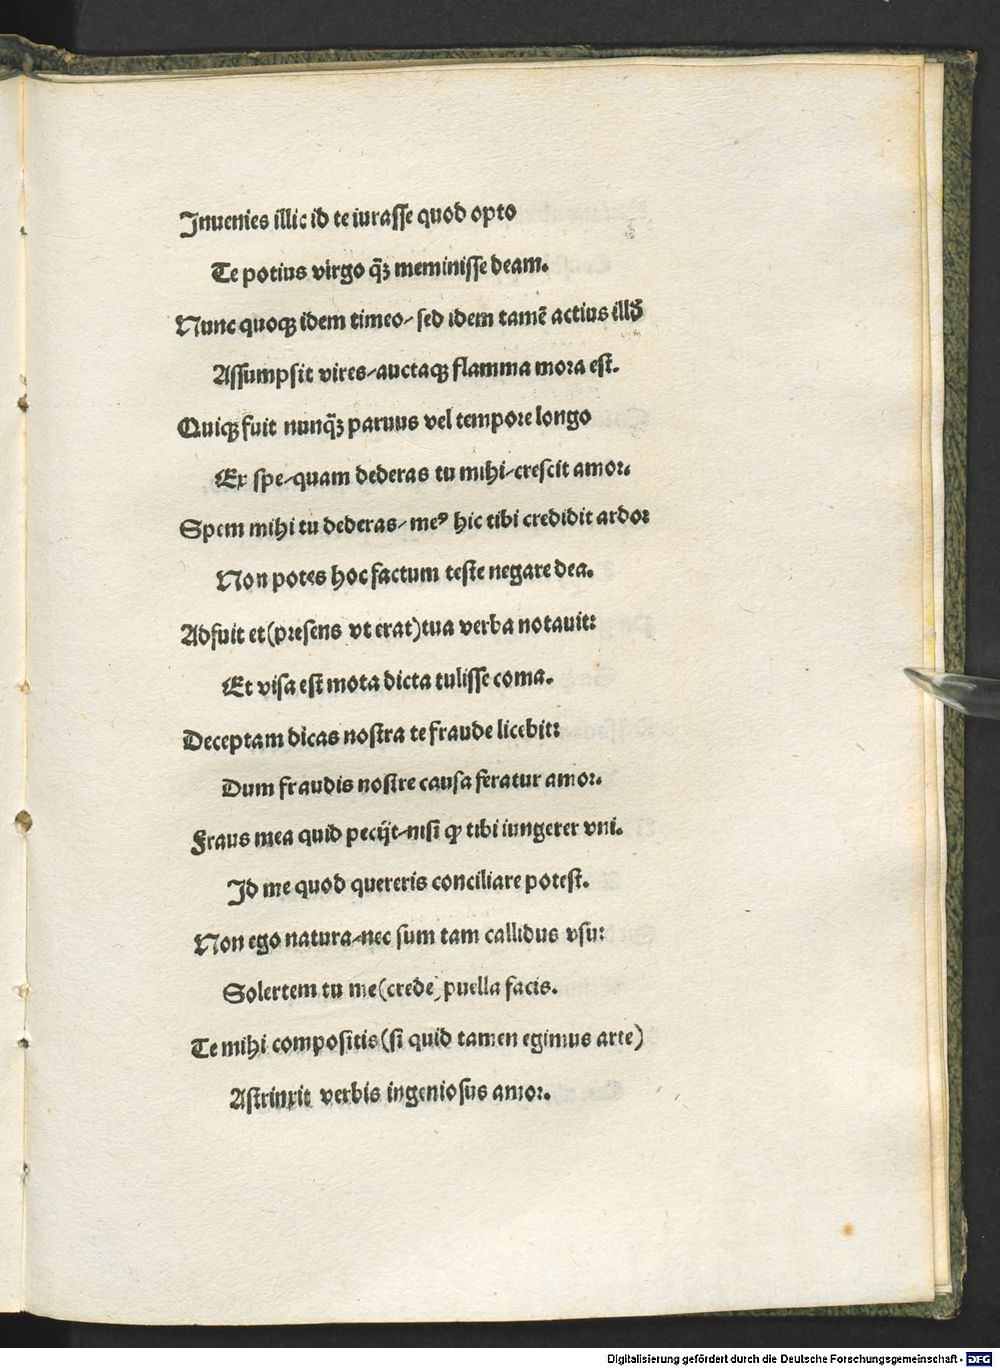 Inuenies illic id te iurasse quod opto
Te potius virgo q̃ꝫ meminisse deam.
Nunc quoqꝫ idem timeo/ sed idem tamẽ actius illđ
Assumpsit vires/auctaqꝫ flamma mora est.
Quiqꝫ fuit nunq̃ꝫ paruus vel tempore longo
Ex spe/quam dederas tu mihi/crescit amor.
Spem mihi tu dederas/ meꝰ hic tibi credidit ardor
Non potes hoc factum teste negare dea.
Adfuit et(presens vt erat)tua verba notauit:
Et visa est mota dicta tulisse coma.
Deceptam dicas nostra te fraude licebit:
Dum fraudis nostre causa feratur amor.
Fraus mea quid pecijt/nisi ꝙ tibi iungerer vni.
Id me quod quereris conciliare potest.
Non ego natura/nec sum tam callidus vsu:
Solertem tu me(crede)puella facis.
Te mihi compositis(si quid tamen egimus arte)
Astrinxit verbis ingeniosus amor.
Digitalisierung gefördert durch die Deutsche Forschungsgemeinschaft - DFG